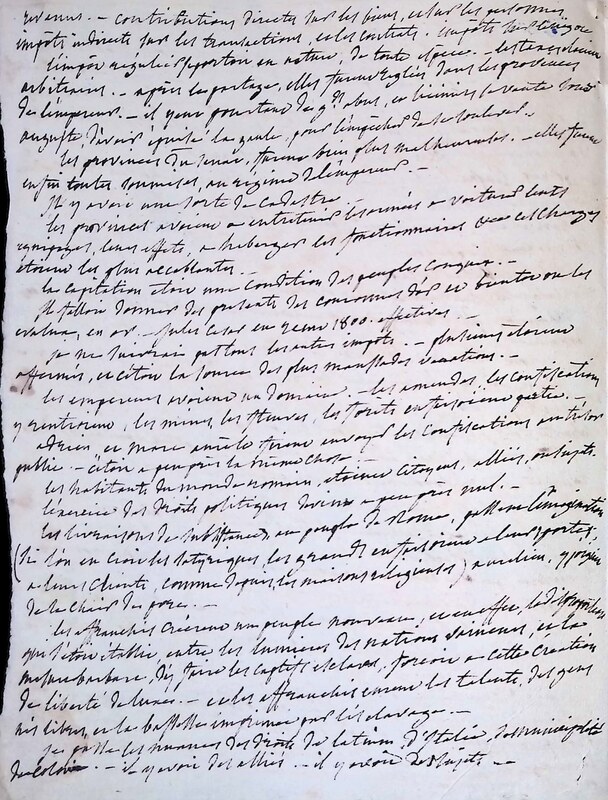 revenus. – contributions directes sur les biens, et sur les personnes
impôts indirects sur les transactions, et les contrats. impôts sur l'
l'impôt régulier, portion en nature, de toute espèce. – les taxes étaient
arbitraires. – après le partage, elles furent réglées dans les provinces
de l'empereur. – il y eut pourtant de g.ds abus, et licinius se vante
auguste d'avoir épuisé la gaule, pour l'empêcher de se soulever. –
les provinces du sénat, furent bien plus malheureuses. – elles furent
enfin toutes soumises, au régime de l'empereur. –
il y avait une sorte de cadastre. –
les provinces avaient à entretenir les armées à voiturer leurs
équipages, leurs effets, à héberger les fonctionnaires ces charges
étaient les plus accablantes. –
la capitation était une condition des peuples conquis. –
il fallait donner des présents des couronnes d'or et bientôt on les
évalua, en or. – jules César en reçut 1800 effectives. –
je ne suivrai pas tous les autres impôts. – plusieurs étaient
affermés, et c'était la source des plus maussades vexations. –
les empereurs avaient un domaine. – les amendes, les confiscations
y rentraient, les mines, les fleuves, les forêts en faisaient partie. –
adrien, et marc aurèle firent envoyer les confiscations au trésor
public. – c'était à peu près la même chose. –
les habitants du monde romain, étaient citoyens, alliés, ou sujets.
l'exercice des droits politiques devint à peu près nul. –
les livraisons de subsistances, au peuple de Rome, passent l'imagination
(si l'on en croit les satyriques, les grands en faisaient à leurs portes,
à leurs clients, comme depuis, les maisons religieuses) aurélien, y joignit
de la chair de porc. –
les affranchis créèrent un peuple nouveau, et en effet, la
qui s'était établie entre les lumières des nations vaincues, et la
mesure barbare, d'en faire les captifs esclaves, forçait à cette création
de liberté de luxe. – et les affranchis eurent les talents, des gens
nés libres, et la bassesse imprimée par l'esclavage. –
je passe les nuances des droits de latium, d'Italie, de municipalité
de colonie. – il y avait des alliés. – il y avait des sujets. –